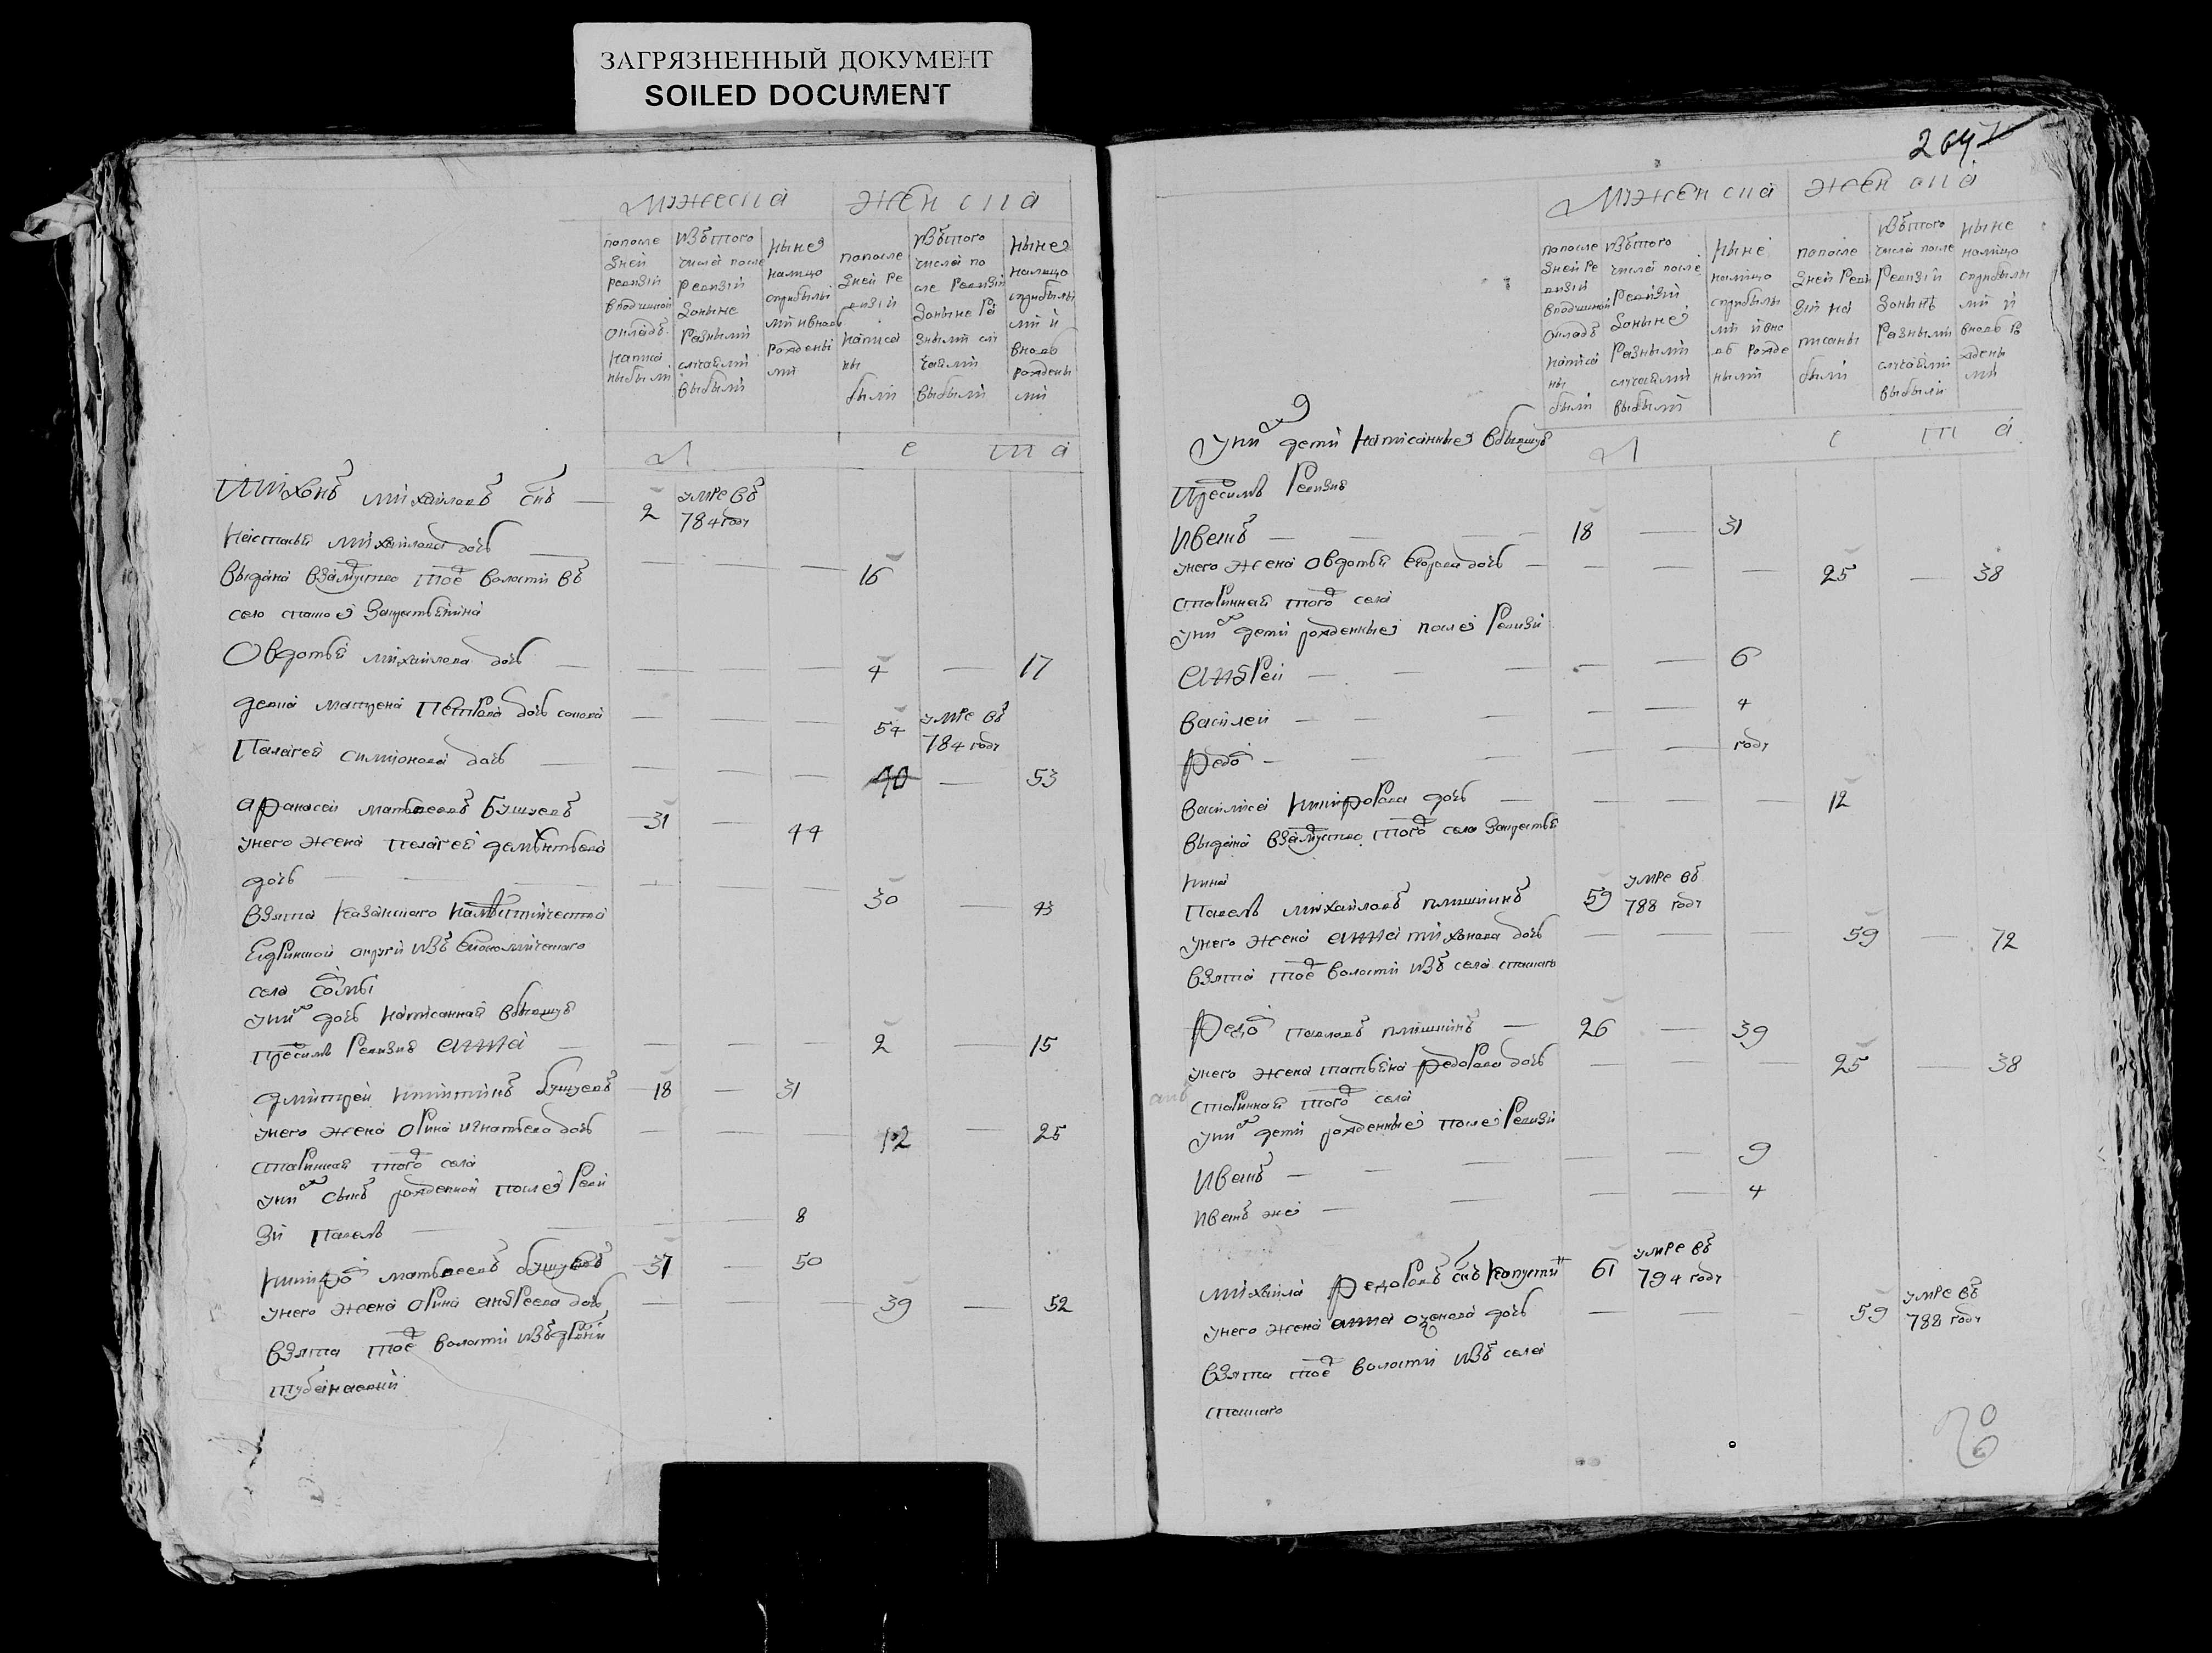 ЗАГРЯЗНЕННЫЙ ДОКУМЕНТ
SOILED DOCUMENT
мужеска женска
по после
дней
ревизий
в подушной
окладъ
написа
ны были
изъ того
числа после
ревизий
до ныне
разными
случаями
выбыли
ныне
налицо
с прибылы
ми и вновь
рожденны
ми
по после
дней ре
визий
написа
ны
были
изъ того
числа по
сле ревизии
до ныне ра
зными слу
чаями
выбыли
ныне
налицо
с прибылы
ми и
вновь
рождены
ми
л е т а
Тихонъ михайловъ снъ 2 умре въ
784 году
Настасья михайлова дочь 16
выдана взамуство тое волости въ
село
Овдотья михайлова дочь 4 17
девка матрена Петрова дочь 54 умре въ
784 году
Палагея симионова дочь 40 53
афанасей матвеевъ бушуевъ 31 44
у него жена пелагея дементьева
дочь 30 43
взята казанского наместничества
округи изъ економического
села
у них дочь написанная в бывшую
пред симъ ревизию анна 2 15
дмитрей никитинъ бушуевъ 18 31
у него жена орина игнатьева дочь 12 25
старинная того села
у них сынъ рожденной после реви
зи павелъ 8
никифоръ матвеевъ бушуевъ 37 50
у него жена орина андреева дочь 39 52
взята тое волости изъ дрвни
2647
мужеска женска
по после
дней ре
визий
в подушной
окладъ
написа
ны
были
изъ того
числа после
ревизий
до ныне
разными
случаями
выбыли
ныне
налицо
с прибылы
ми и вно
вь рожде
ными
по после
дней реви
зий на
писаны
были
изъ того
числа после
ревизий
до ныне
разными
случаями
выбыли
ныне
налицо
с прибылы
ми и
вновь ро
ждены
ми
л е т а
у них дети написанные в бывшую
пред симъ ревизию
иванъ 18 31
у него жена овдотья егорова дочь 25 38
старинная того села
у них дети рожденные после ревизи
андрей 6
василей 4
федоръ году
василиса никифорова дочь 12
выдана взамуство того села за крестья
нина
павелъ михайловъ 59 умре въ
788 году
у него жена анна тихонова дочь 59 72
взята тое волости изъ села
федоръ павловъ 26 39
у него жена татьяна федорова дочь 25 38
старинная того села
у них дети рожденные после ревизи
иванъ 9
иванъ же 4
михайла федоровъ снъ капусти 61 умре въ
794 году
у него жена анна дочь 59 умре въ
788 году
взята тое волости изъ села